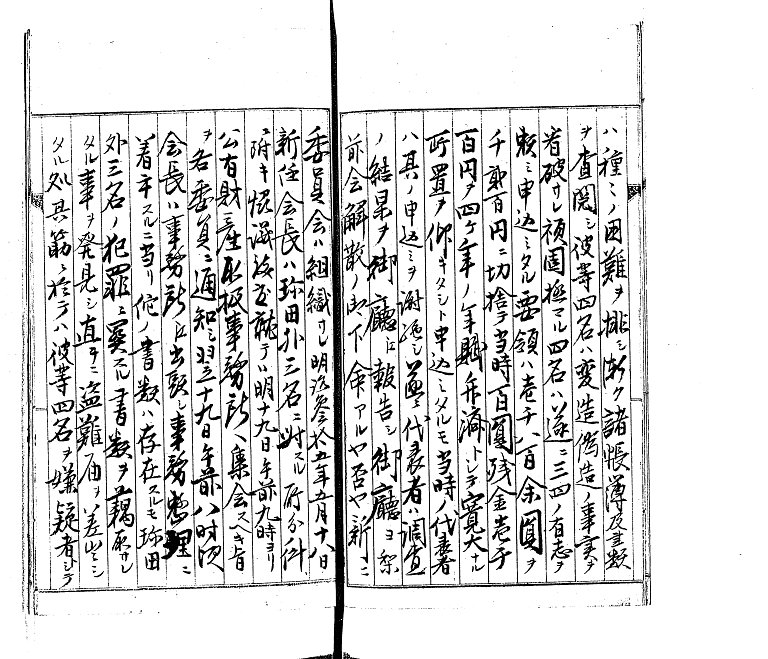 ハ種々ノ困難ヲ排シ漸ク諸帳簿及書類
ヲ査閲シ彼等四名ハ変造偽造ノ事実ヲ
看破サレ頑固極マル四名ハ遂ニ三四ノ有志ヲ
頼ミ申込ミタル要領ハ壱千八百余圓ヲ
千弐百円ニ切捨テ当時一百圓残金壱千
百円ヲ四ケ年ノ年賦弁済トシテ寛大ナル
所置ヲ仰キタシト申込ミタルモ当時ノ代表者
ハ其ノ申込ミヲ謝絶シ代表者ハ調査
ノ結果ヲ御廳江報告シ御廳ヨリ
前会解散ノ御下命アルヤ否ヤ新ニ
委員会ハ組織サレ明治参拾五年五月十八日
新任会長ハ珎田外三名ニ対スル所分件
ニ附キ協議致度就テハ明十九日午前九時ヨリ
公有財産取扱事務所ヘ集会スヘキ旨
ヲ各委員ニ通知シ翌十九日午前八時頃
会長ハ事務所江出頭シ事務整理ニ
着手スルニ当リ他ノ書類ハ存在スルモ珎田
外三名ノ犯罪ニ関スル書類ヲ竊取サレ
タル事ヲ発見シ直チニ盗難届ヲ差出シ
タル処其筋ニ於テハ彼等四名ヲ嫌疑者トシテ